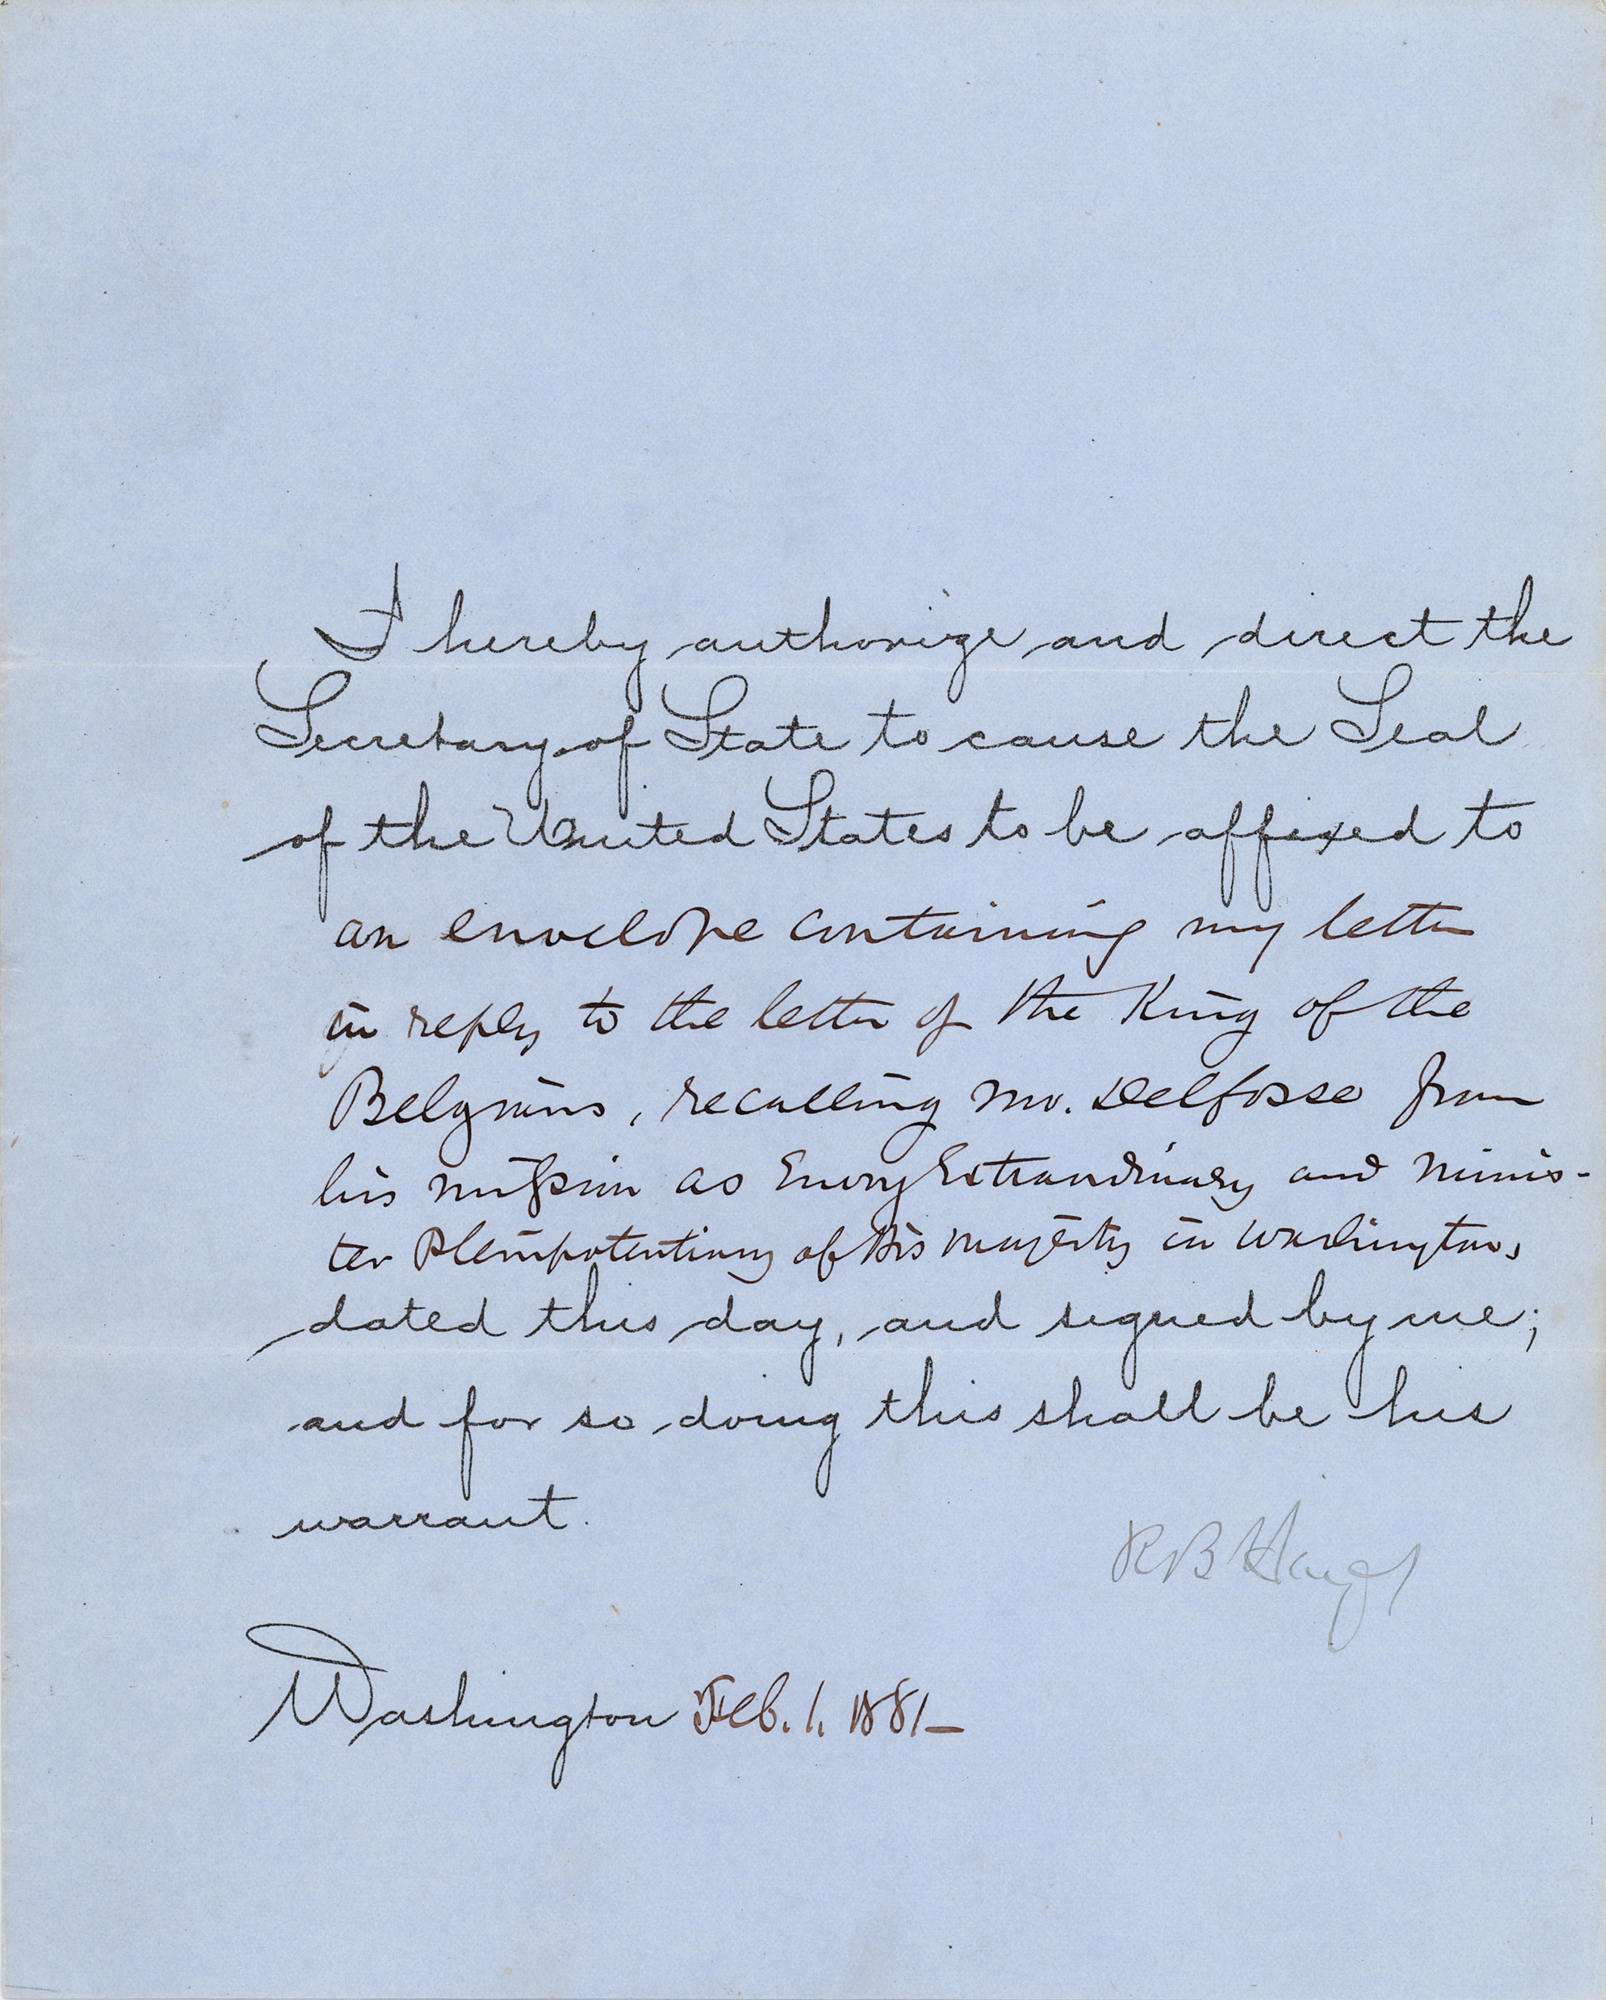 I hereby authorize and direct the
Secretary of State to cause the Seal
of the United States to be affixed to
an envelope containing my letter
in reply to the letter of the King of the
Belgians, recalling Mr. Delfosse from
his mission as Envoy Extraordinary and Minis-
ter Plenipotentiary of His Majesty in Washington,
dated this day, and signed by me;
and for so doing this shall be his
warrant.
R B Hayes
Washington Feb. 1. 1881—